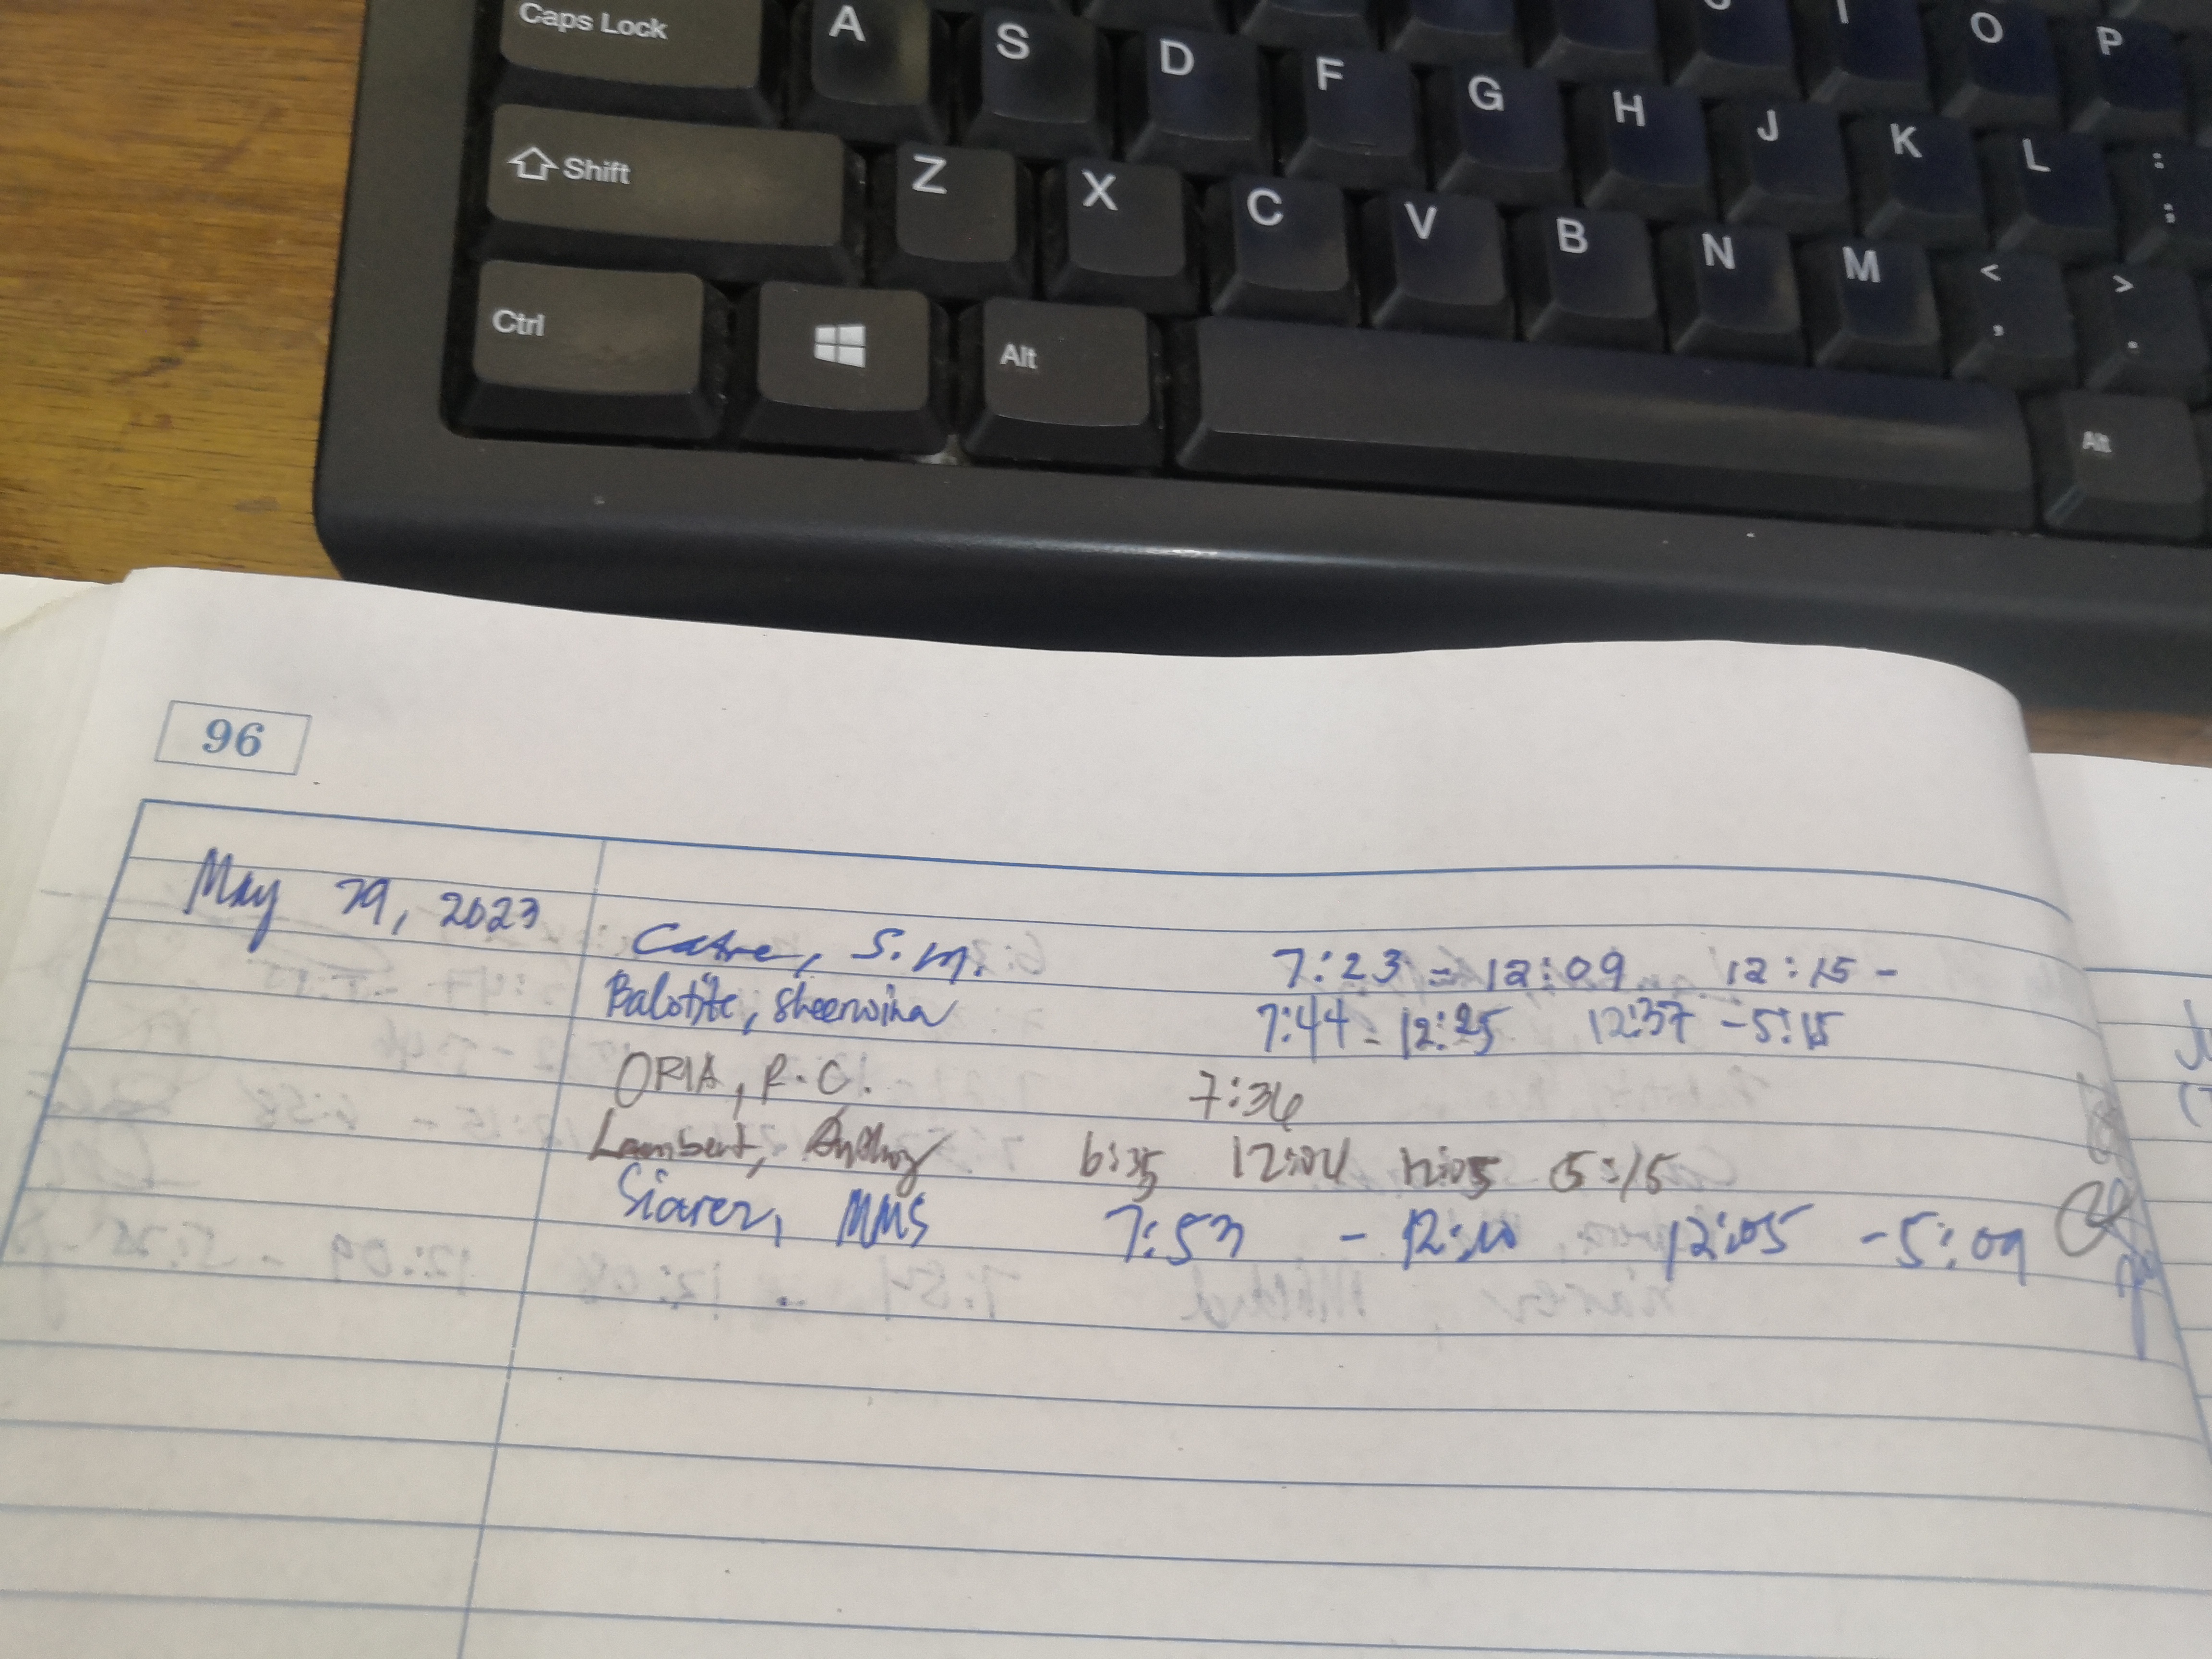 Caps Lock A S D F G H J K L : ;
I O P
Shift Z X C V B N M < , > .
Ctrl Alt Alt
96
May 29, 2023
Catre, S.M. 7:23 - 12:09 12:15 -
Balotite, Sheerwina 7:44 - 12:25 12:37 - 5:15
ORIA, R.C. 7:36
Lambert, Anthony 6:35 12:04 12:05 5:15
Siarez, MMS 7:53 - 12:10 12:05 - 5:09